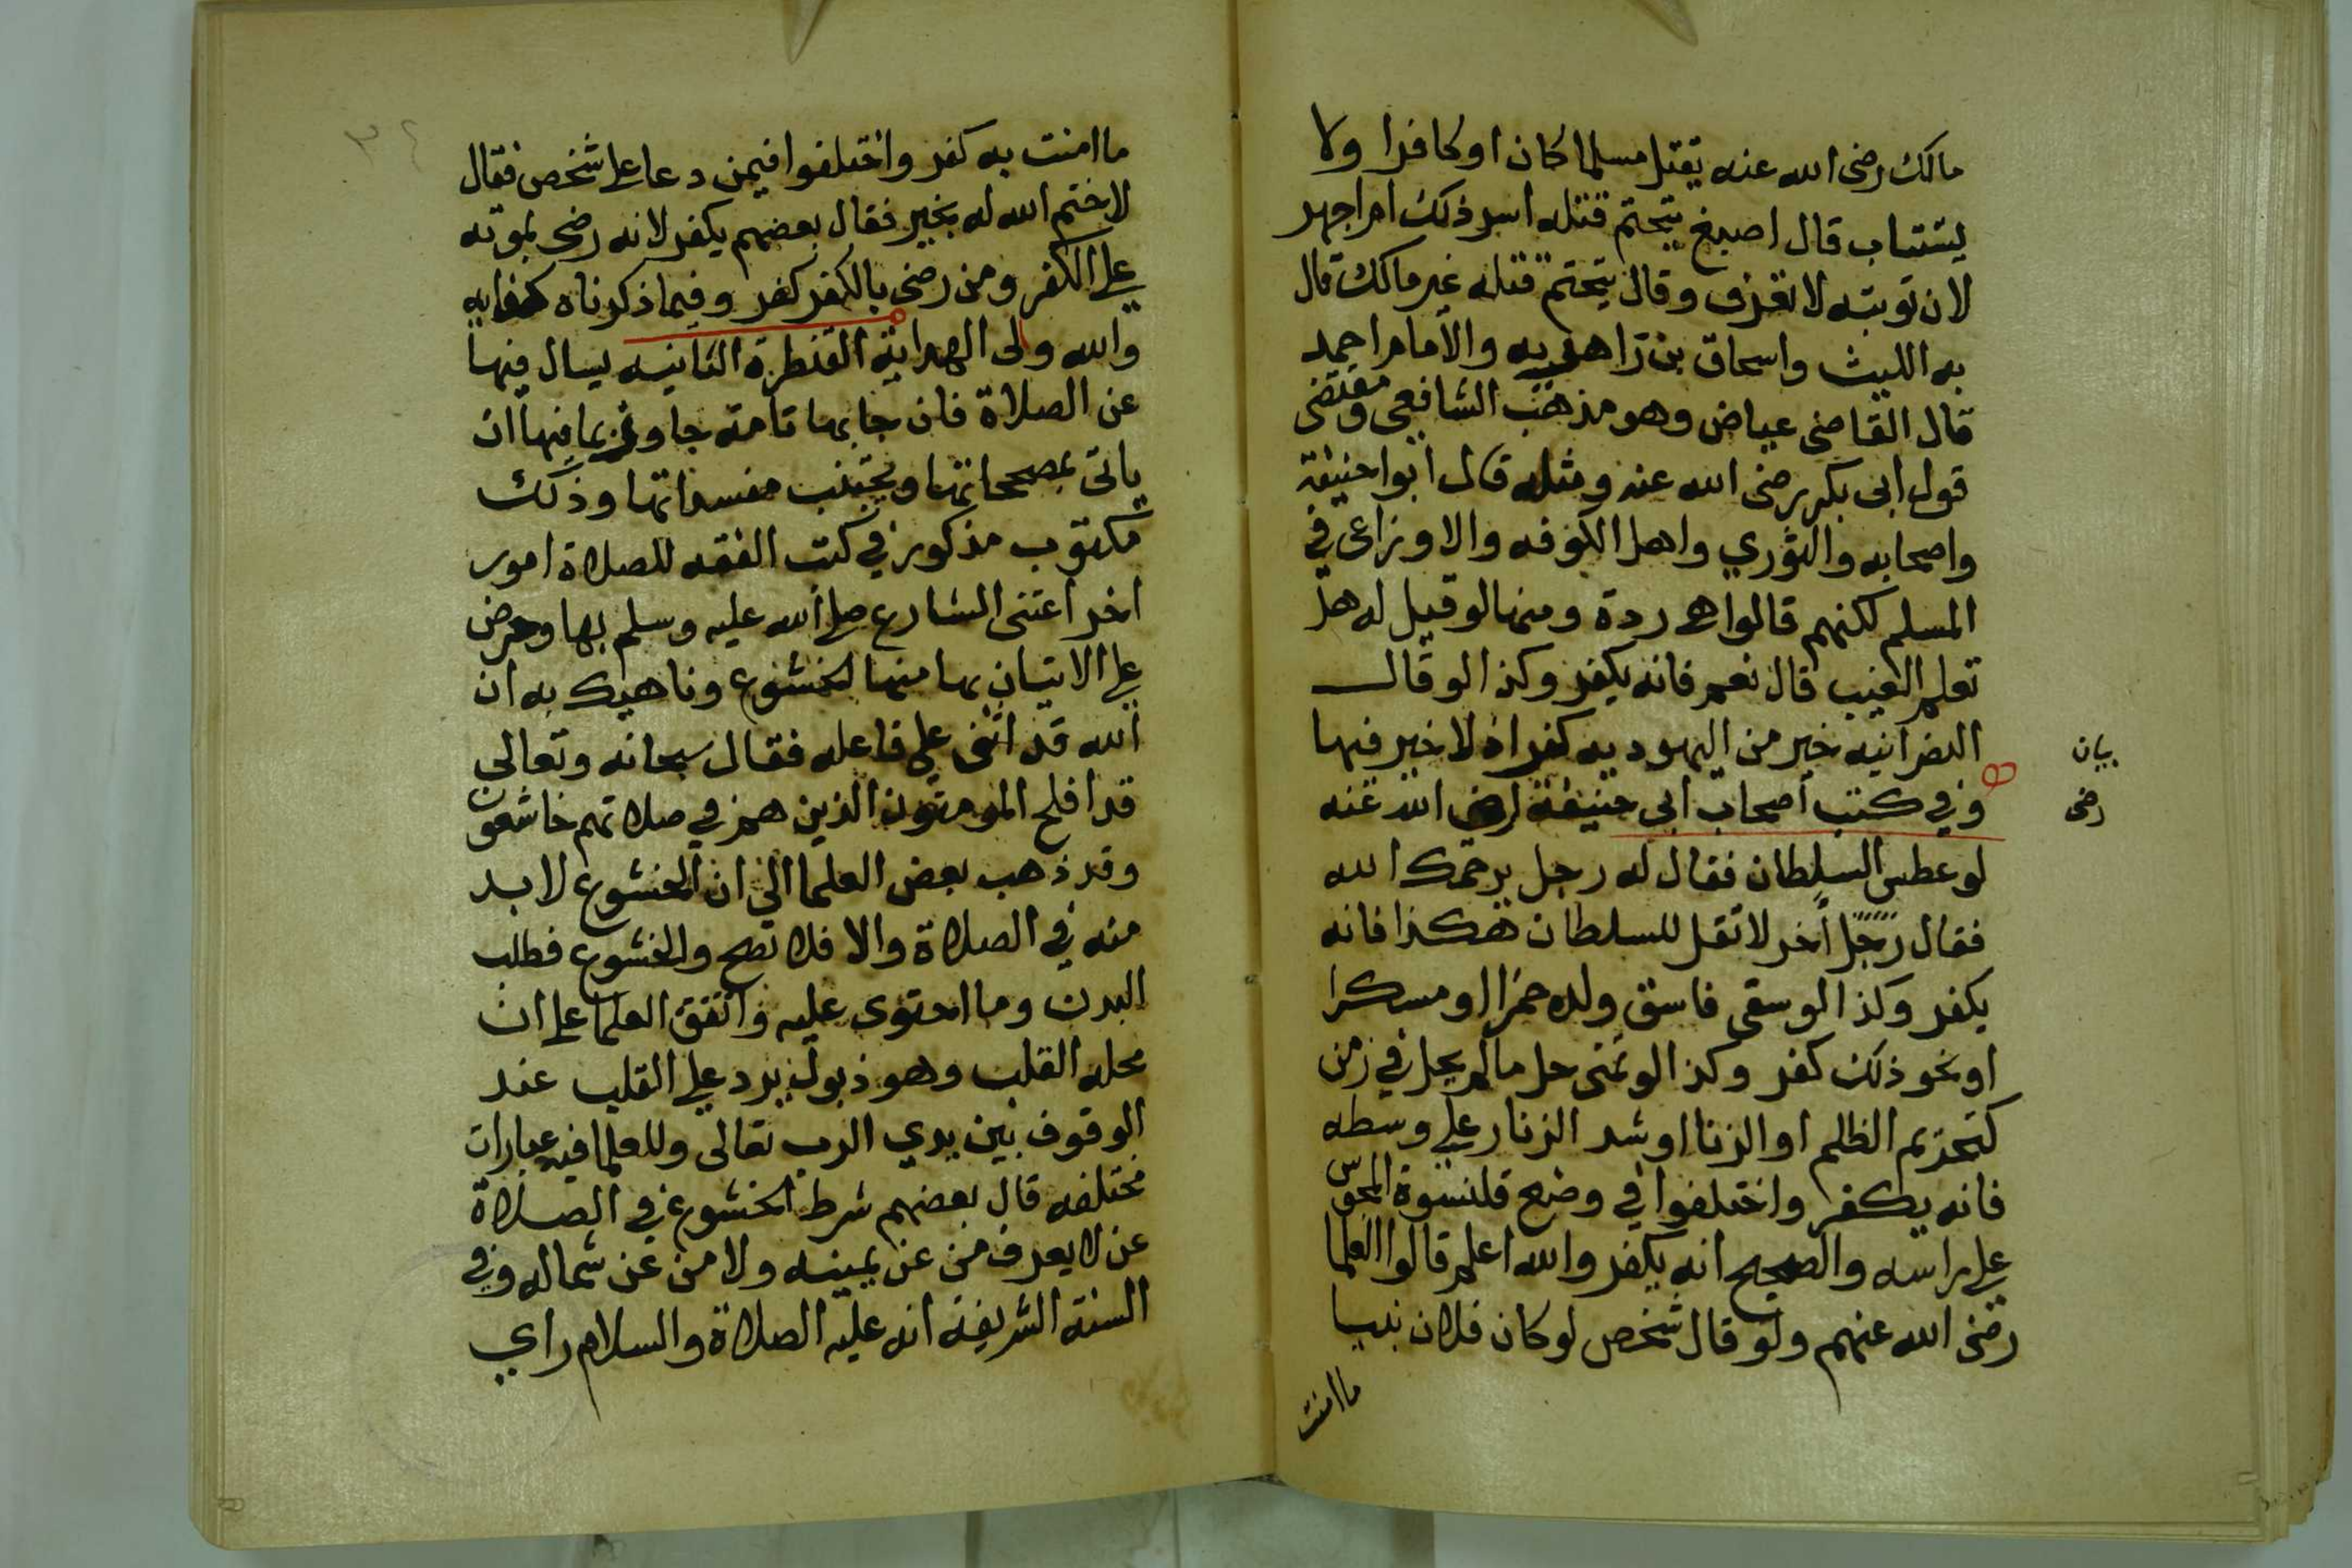 مالك رضى الله عنه يقتل مسلما كان او كافرا ولا
يستتاب قال اصبغ يتحتم قتله اسر ذلك ام اجهر
لان توبته لا تعرف وقال يتحتم قتله غير مالك قال
به الليث واسحاق بن راهويه والامام احمد
قال القاضى عياض وهو مذهب الشافعى ومقتضى
قول ابى بكر رضى الله عنه ومثله قال ابوا حنيفة
واصحابه والثوري واهل الكوفه والاوزاعى في
المسلم لكنهم قالوا هى ردة ومنها لو قيل له هل
تعلم الغيب قال نعم فانه يكفر وكذا لو قال
النصرانيه خير من اليهوديه كفر اذ لا خير فيها
وفي كتب اصحاب ابى حنيفة رضى الله عنه
بيان
رضى
لو عطس السلطان فقال له رجل يرحمك الله
فقال رجل اخر لا تقل للسلطان هكذا فانه
يكفر وكذا لو سقى فاسق ولده خمرا او مسكرا
او نحو ذلك كفر وكذا لو تمنى حل مالم يحل في زمن
كتحريم الظلم او الزنا او شد الزنار على وسطه
فانه يكفر واختلفوا في وضع قلنسوة المجوس
على راسه والصحيح انه يكفر والله اعلم قالوا العلما
رضى الله عنهم ولو قال شخص لو كان فلان نبيا
ما امنت
٣٤
ما امنت به كفر واختلفوا فيمن دعا على شخص فقال
لا ختم الله له بخير فقال بعضهم يكفر لانه رضى بموته
على الكفر ومن رضى بالكفر كفر وفيما ذكرناه كفايه
والله ولى الهداية القنطرة الثانيه يسال فيها
عن الصلاة فان جا بها تامة جا وز بما فيها ان
ياتى بمصححاتها ويجتنب مفسداتها وذلك
مكتوب مذكور في كتب الفقه للصلاة امور
اخر اعتنى الشارع صلى الله عليه وسلم بها وحرض
على الاتيان بها منها الخشوع وناهيك به ان
الله قد اثنى على فاعله فقال سبحانه وتعالى
قد افلح المومنون الذين هم في صلاتهم خاشعون
وقد ذهب بعض العلما الي ان الخشوع لا بد
منه في الصلاة والا فلا تصح والخشوع فطلب
البدن وما احتوى عليه واتفق العلما على ان
محله القلب وهو ذبول يرد على القلب عند
الوقوف بين يدي الرب تعالى وللعلما فيه عبارات
مختلفه قال بعضهم شرط الخشوع في الصلاة
عن لا يعرف من عن يمينه ولا من عن شماله وفي
السنة الشريفة انه عليه الصلاة والسلام راي